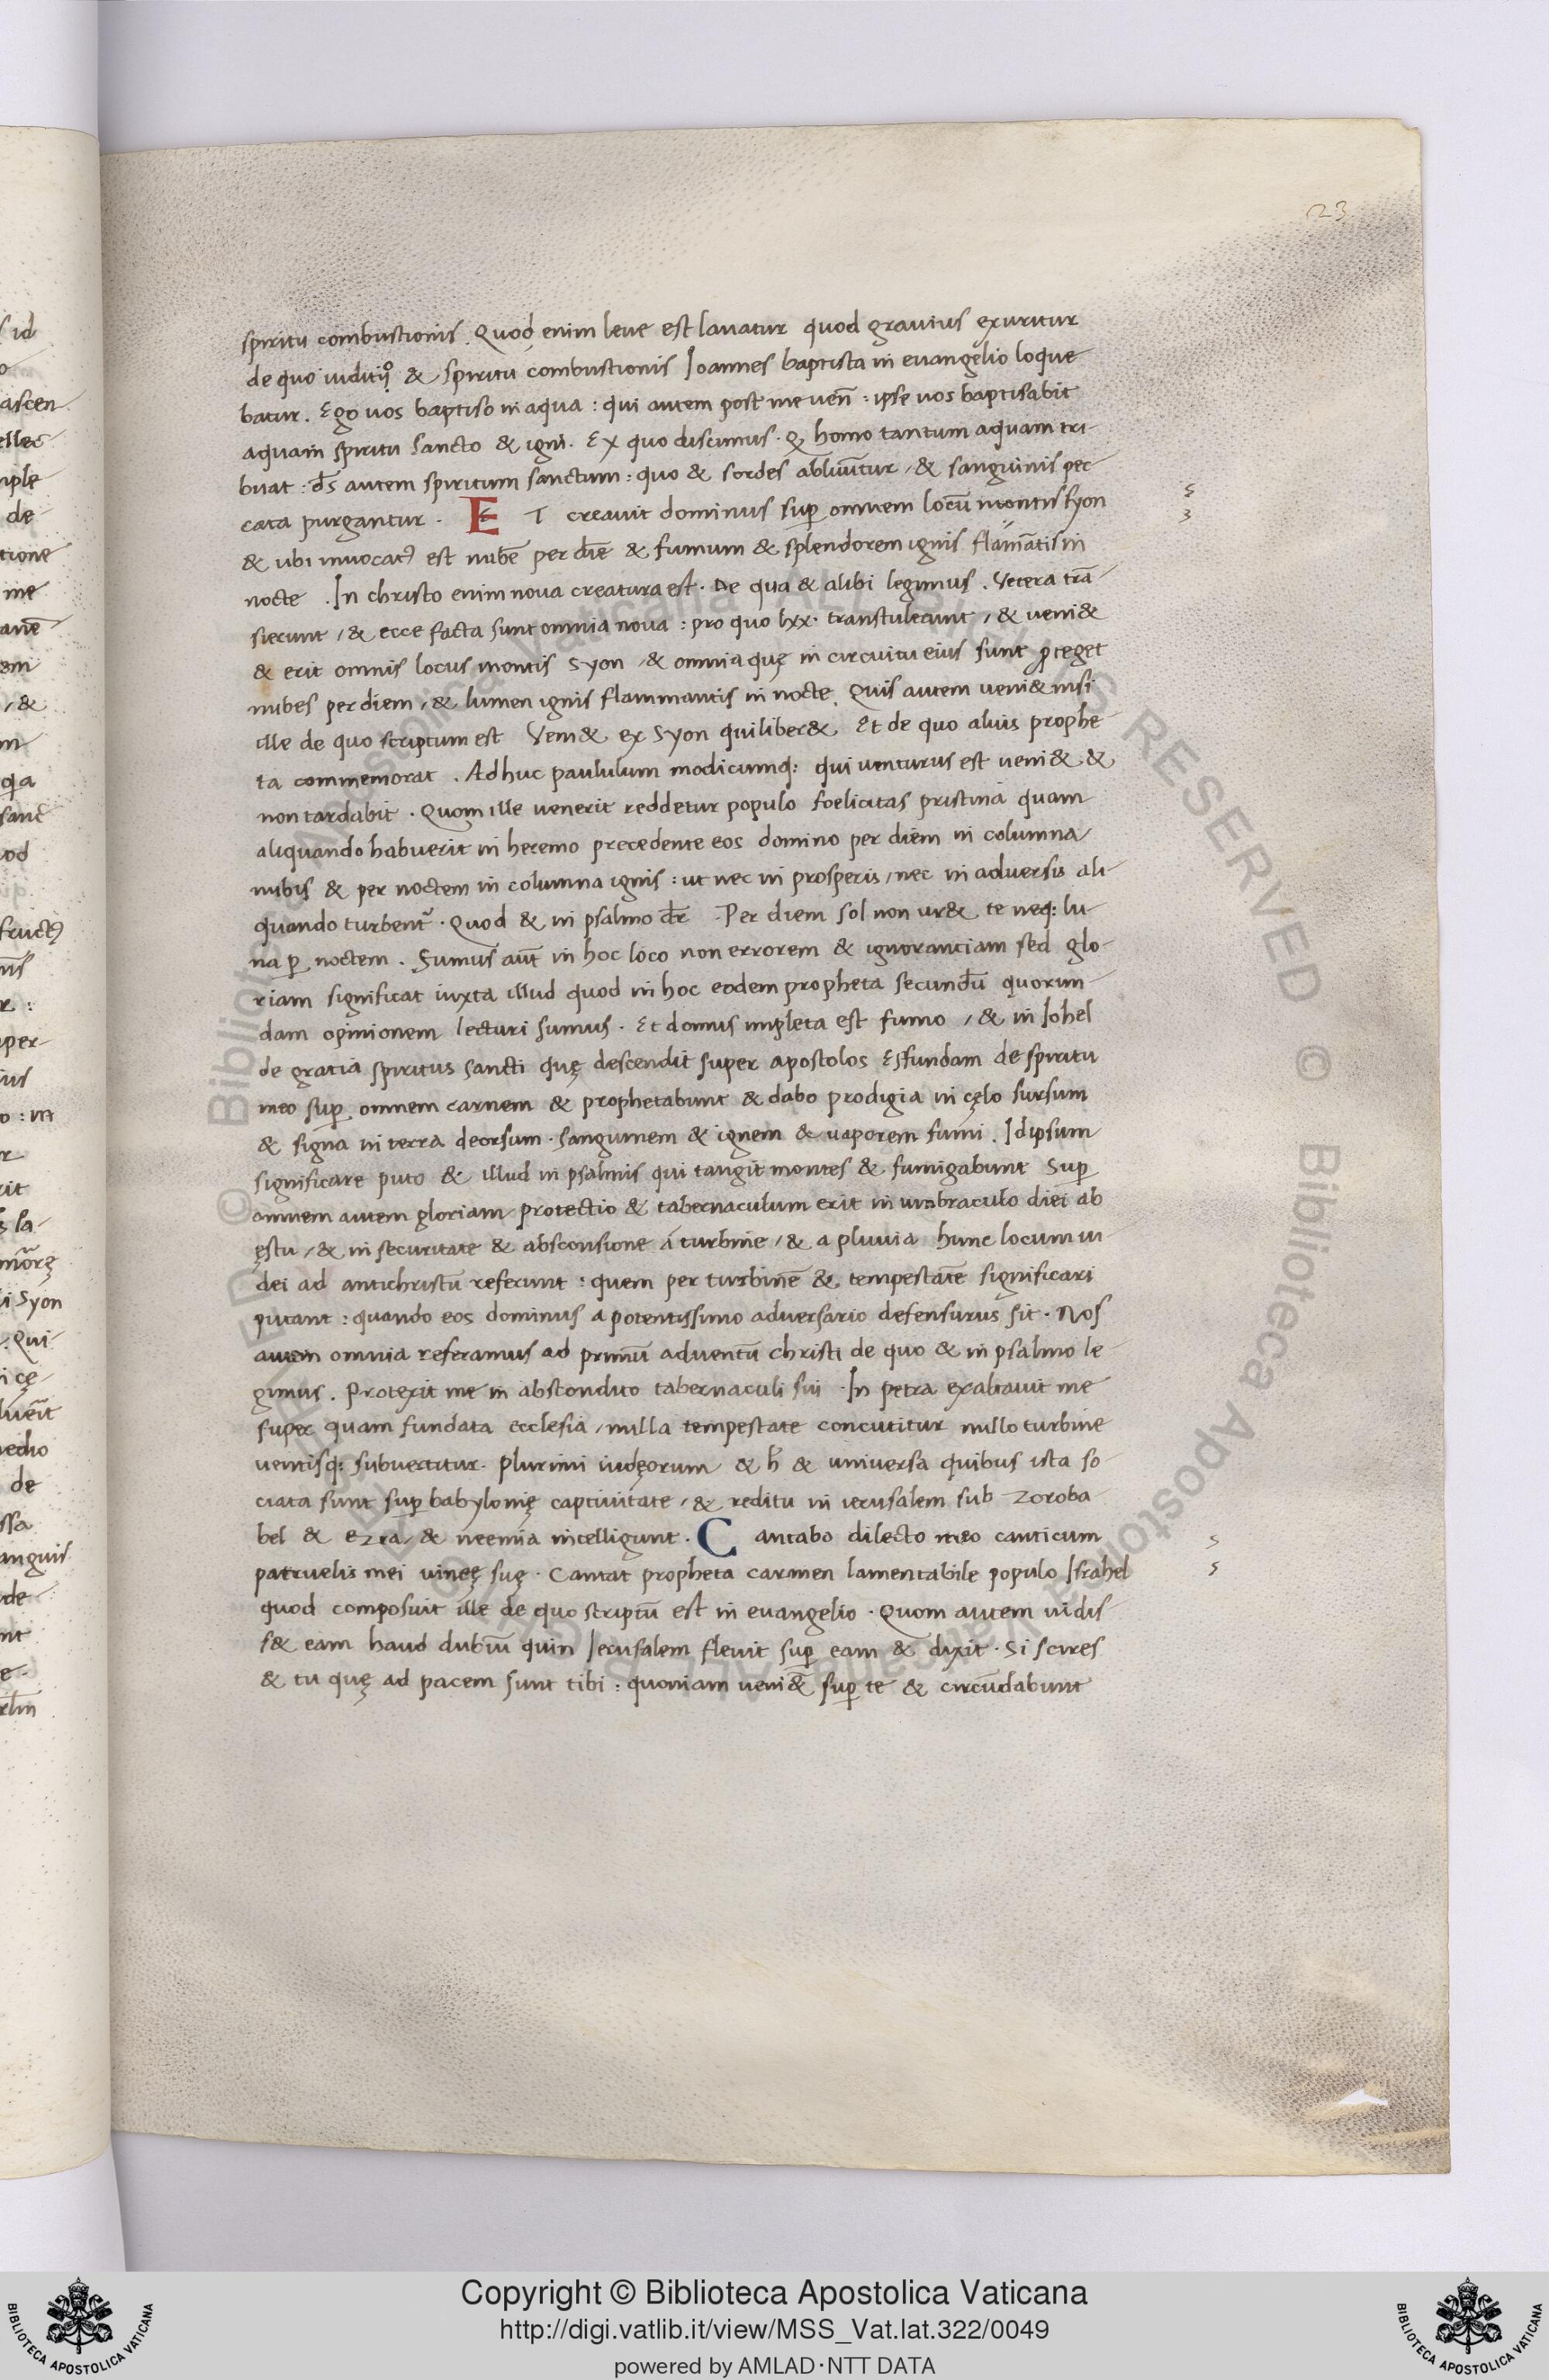 23
spiritu combustionis. Quod enim leue est lauatur quod grauius exuritur
de quo iuditiјº & spiritu combustionis Ioannes baptista in euangelio loque
batur. Ego uos baptiso in aqua: qui autem post me ueñ: ipse uos baptisabit
aquam spiritu sancto & igni. Ex quo discimus. ꝙ homo tantum aquam tri-
buat: ds̄ autem spiritum sanctum: quo & sordes abluūtur, & sanguinis pec
cata purgantur. ET creauit dominus suꝑ omnem locū montis syon
& ubi inuocatꝰ est nubē per diē & fumum & splendorem ignis flāmātis in
nocte. In christo enim noua creatura est. De qua & alibi legimus. Vetera trā-
sierunt, & ecce facta sunt omnia noua: pro quo lxx. transtulerunt, & ueni&
& erit omnis locus montis Syon, & omnia quę in circuitu eius sunt ꝓteget
nubes per diem, & lumen ignis flammantis in nocte. Quis autem ueni& nisi
ille de quo scriptum est Veni& ex Syon qui liber& Et de quo aluis prophe-
ta commemorat. Adhuc paululum modicumq: qui uenturus est ueni& &
non tardabit. Quom ille uenerit reddetur populo foelicitas pristina quam
aliquando habuerit in heremo precedente eos domino per diem in columna
nubis & per noctem in columna ignis: ut nec in prosperis, nec in aduersis ali-
quando turbent᷑. Quod & in psalmo dr̄. Per diem sol non ur& te neq: lu-
na ꝑ noctem. Fumus aūt in hoc loco non errorem & ignoranciam sed glo-
riam significat iuxta illud quod in hoc eodem propheta secundū quorun-
dam opinionem lecturi sumus. Et domus impleta est fumo, & in Iohel
de gratia spiritus sancti quę descendit super apostolos Effundam de spiritu
meo suꝑ omnem carnem & prophetabunt & dabo prodigia in cęlo sursum
& signa in terra deorsum. sanguinem & ignem & uaporem fumi. Idipsum
significare puto & illud in psalmis qui tangit montes & fumigabunt Suꝑ
omnem autem gloriam protectio & tabernaculum erit in umbraculo diei ab
ęstu, & in securitate & absconsione á turbine, & a pluuia hunc locum iu-
dei ad antichristū referunt: quem per turbinē & tempestatē significari
putant: quando eos dominus a potentissimo aduersario defensurus sit. Nos
autem omnia referamus ad primū aduentū christi de quo & in psalmo le-
gimus. Protexit me in abscondito tabernaculi sui. In petra exaltauit me
super quam fundata ecclesia, nulla tempestate concutitur nullo turbine
uentisq: subuertitur. Plurimi iudęorum & h̄ & uniuersa quibus ista so-
ciata sunt suꝑ babylonię captiuitate, & reditu in ierusalem sub Zoroba-
bel & ezra, & neemia intelligunt. Cantabo dilecto meo canticum
patruelis mei uineę suę. Cantat propheta carmen lamentabile populo Israhel
quod composuit ille de quo scriptū est in euangelio. Quom autem uidis
s& eam haud dubiū quin Ierusalem fleuit suꝑ eam & dixit. Si scires
& tu quę ad pacem sunt tibi: quoniam ueni&̄ suꝑ te & circūdabunt
Copyright © Biblioteca Apostolica Vaticana
http://digi.vatlib.it/view/MSS_Vat.lat.322/0049
powered by AMLAD·NTT DATA
BIBLIOTECA APOSTOLICA VATICANA
BIBLIOTECA APOSTOLICA VATICANA